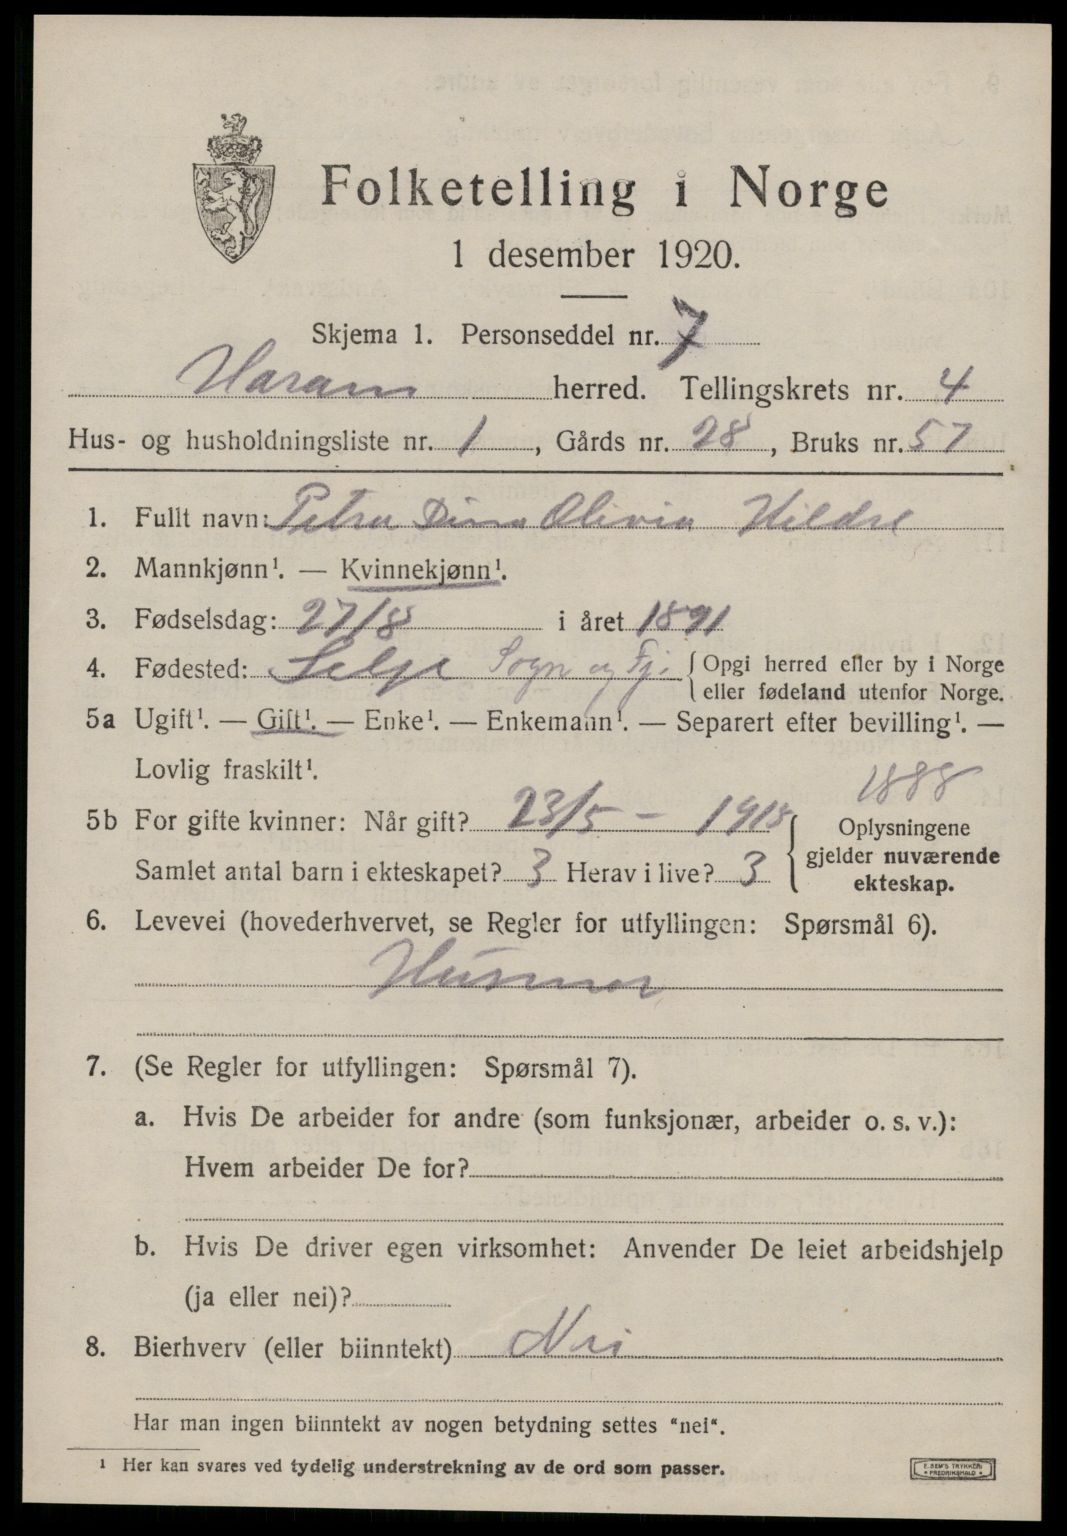 Folketelling i Norge
1 desember 1920.
Skjema 1. Personseddel nr. 7
Haram herred. Tellingskrets nr. 4
Hus- og husholdningsliste nr. 1, Gårds nr. 28, Bruks nr. 57
1. Fullt navn: Petra Dina Olivia Hildre
2. Mannkjønn¹. — Kvinnekjønn¹.
3. Fødselsdag: 27/8 i året 1891
4. Fødested: Selje Sogn og Fj. {Opgi herred eller by i Norge
eller fødeland utenfor Norge.
5a Ugift¹. — Gift¹. — Enke¹. — Enkemann¹. — Separert efter bevilling¹. —
Lovlig fraskilt¹.
1888
5b For gifte kvinner: Når gift? 23/5 - 1918 { Oplysningene
gjelder nuværende
ekteskap.
Samlet antal barn i ekteskapet? 3 Herav i live? 3
6. Levevei (hovederhvervet, se Regler for utfyllingen: Spørsmål 6).
Husmor
7. (Se Regler for utfyllingen: Spørsmål 7).
a. Hvis De arbeider for andre (som funksjonær, arbeider o. s. v.):
Hvem arbeider De for?
b. Hvis De driver egen virksomhet: Anvender De leiet arbeidshjelp
(ja eller nei)?
8. Bierhverv (eller biinntekt) Nei
Har man ingen biinntekt av nogen betydning settes "nei".
¹ Her kan svares ved tydelig understrekning av de ord som passer.
E. SEM'S TRYKKERI
FREDRIKSHALD